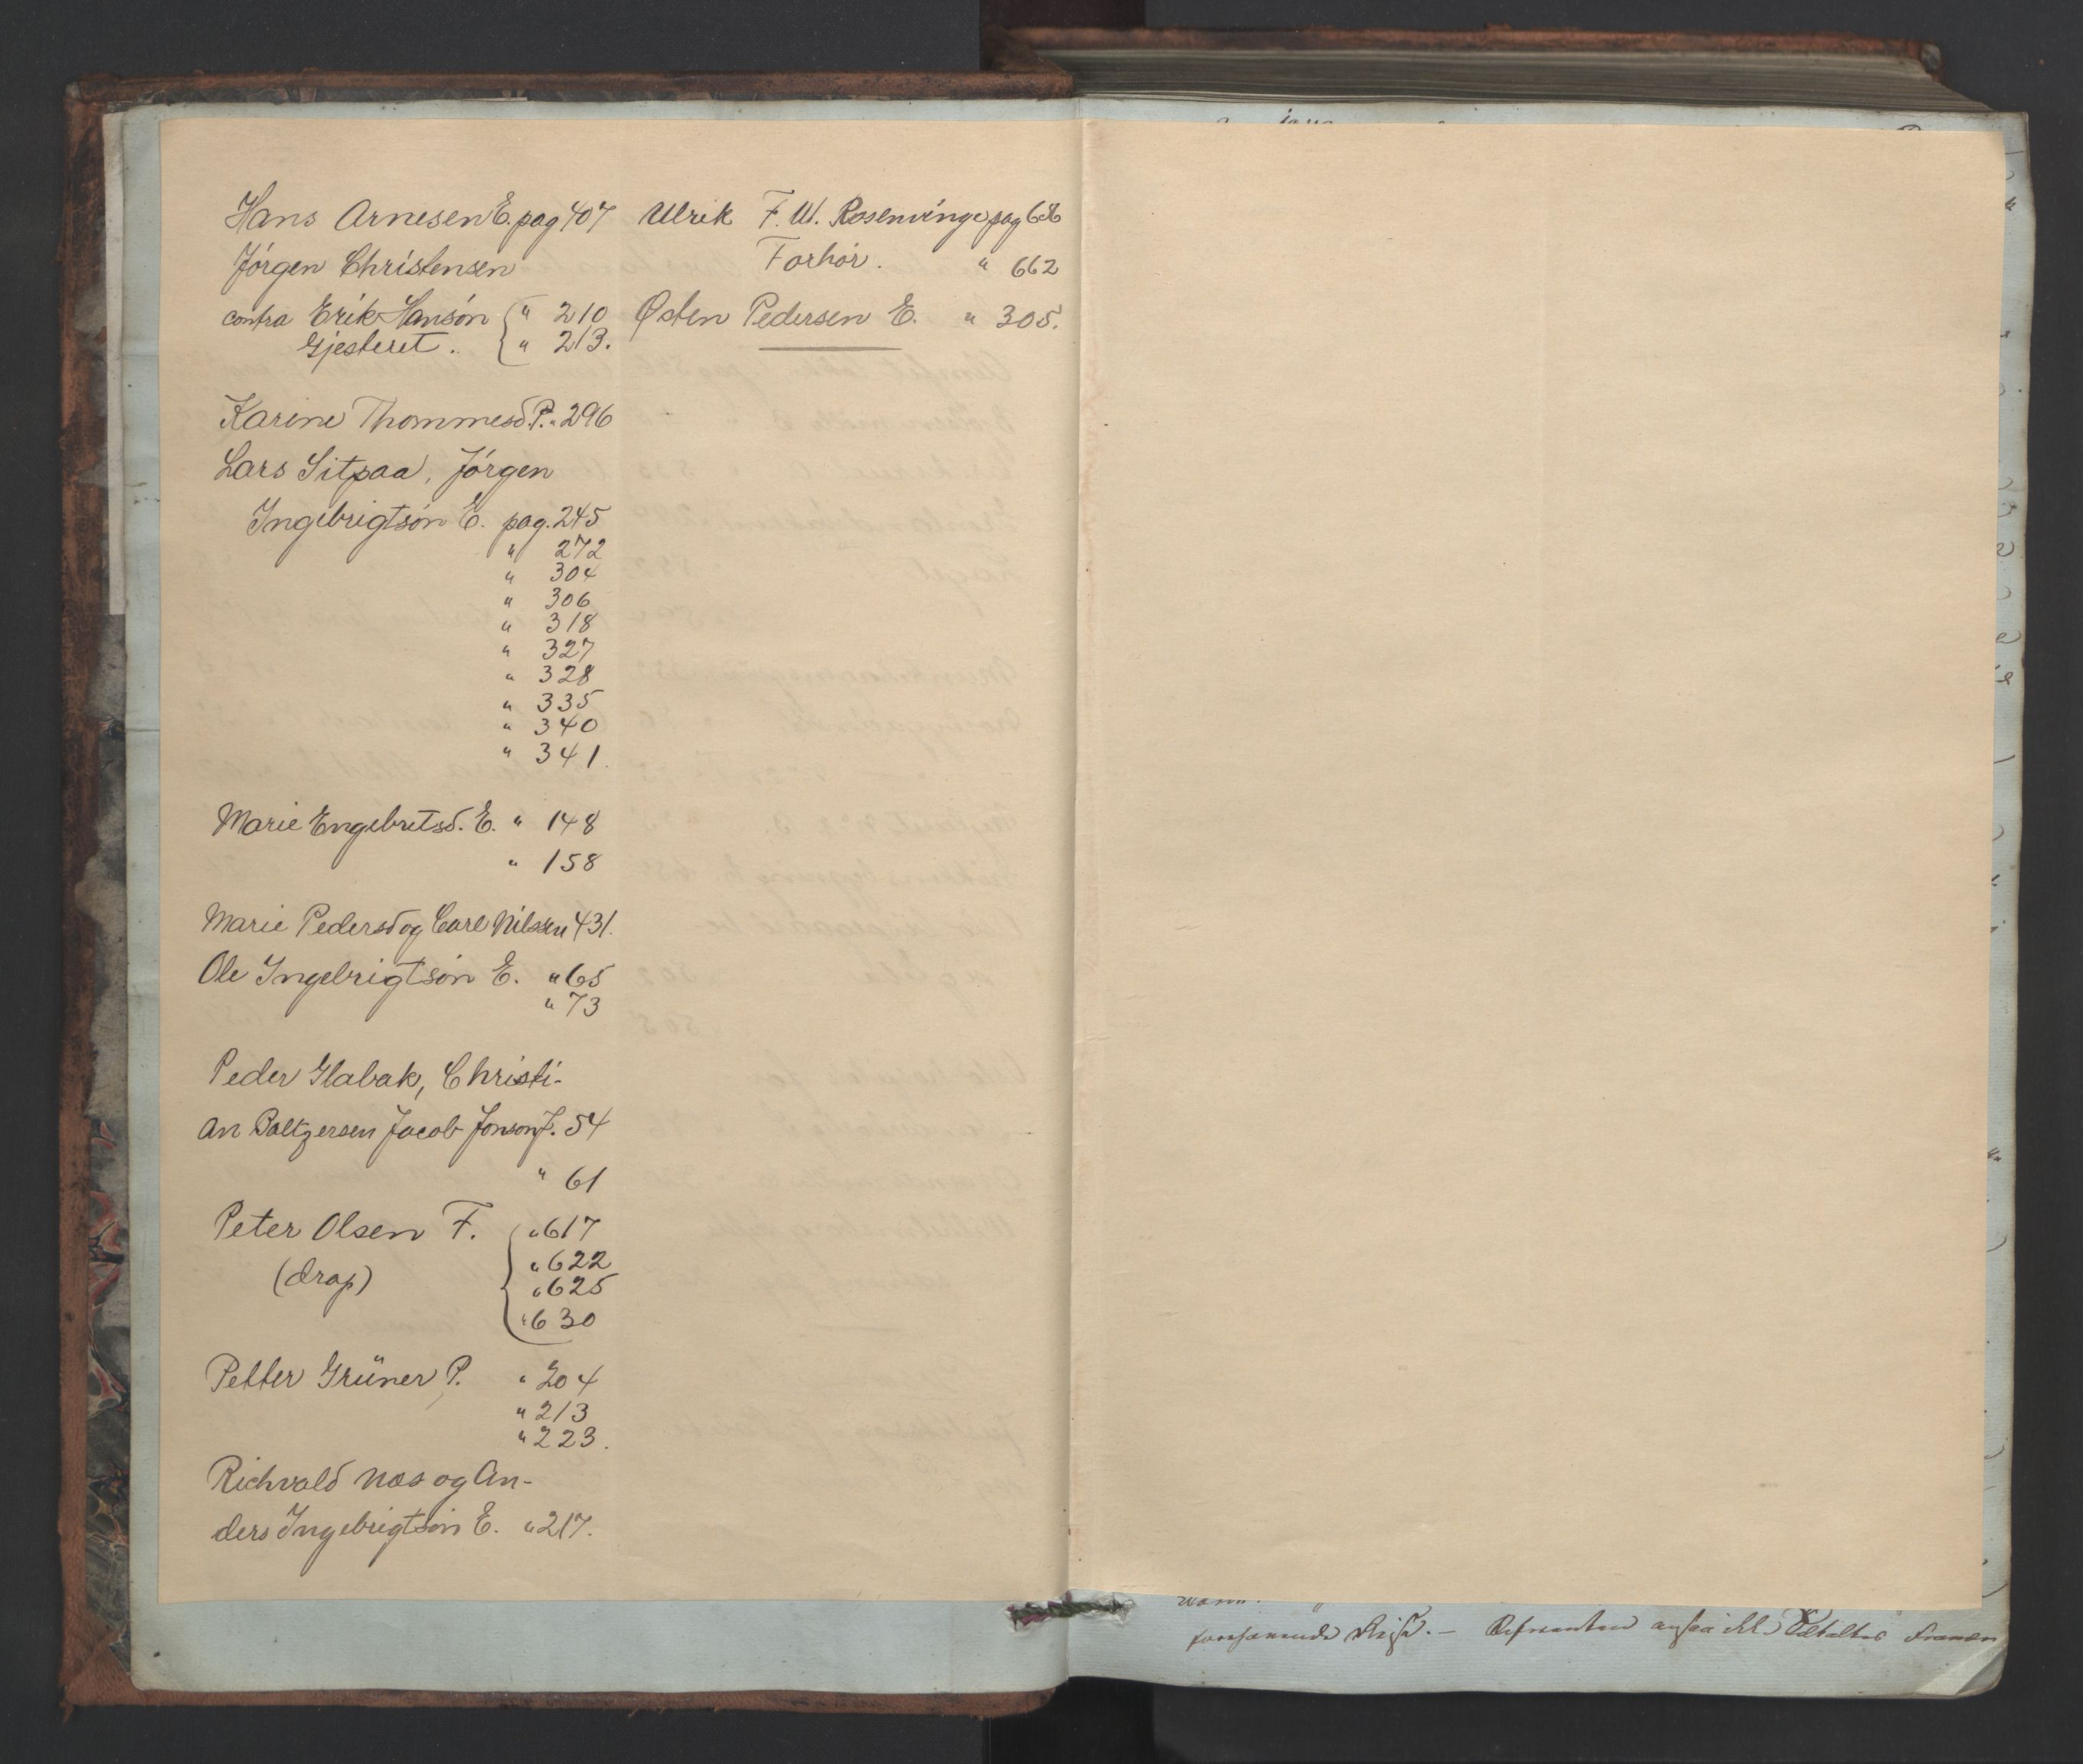 Hans Arnesen E. pag 407
Jörgen Christensen
contra Erik Hansön " 210
Gjesteret. " 213.
Karine Thommesd. P. " 296
Lars Sitpaa, Jörgen
Ingebrigtsön E. pag. 245
" 272
" 304
" 306
" 318
" 327
" 328
" 335
" 340
" 341.
Marie Engebretsd. E. " 148
" 158
Marie Pedersd og Carl Nilssen 431.
Ole Ingebrigtsön E. " 65
" 73
Peder Glabak, Christi-
an Baltzersen Jacob Jonson F. 54
" 61
Peter Olsen F. " 617
(drap) " 622
" 625
" 630
Petter Grüner P. " 204
" 213
" 223.
Richvald Næs og An-
ders Ingebrigtsön E. " 217.
Ulrik F. W. Rosenvinge pag
Forhör. " 662
Østen Pedersen E. " 305.